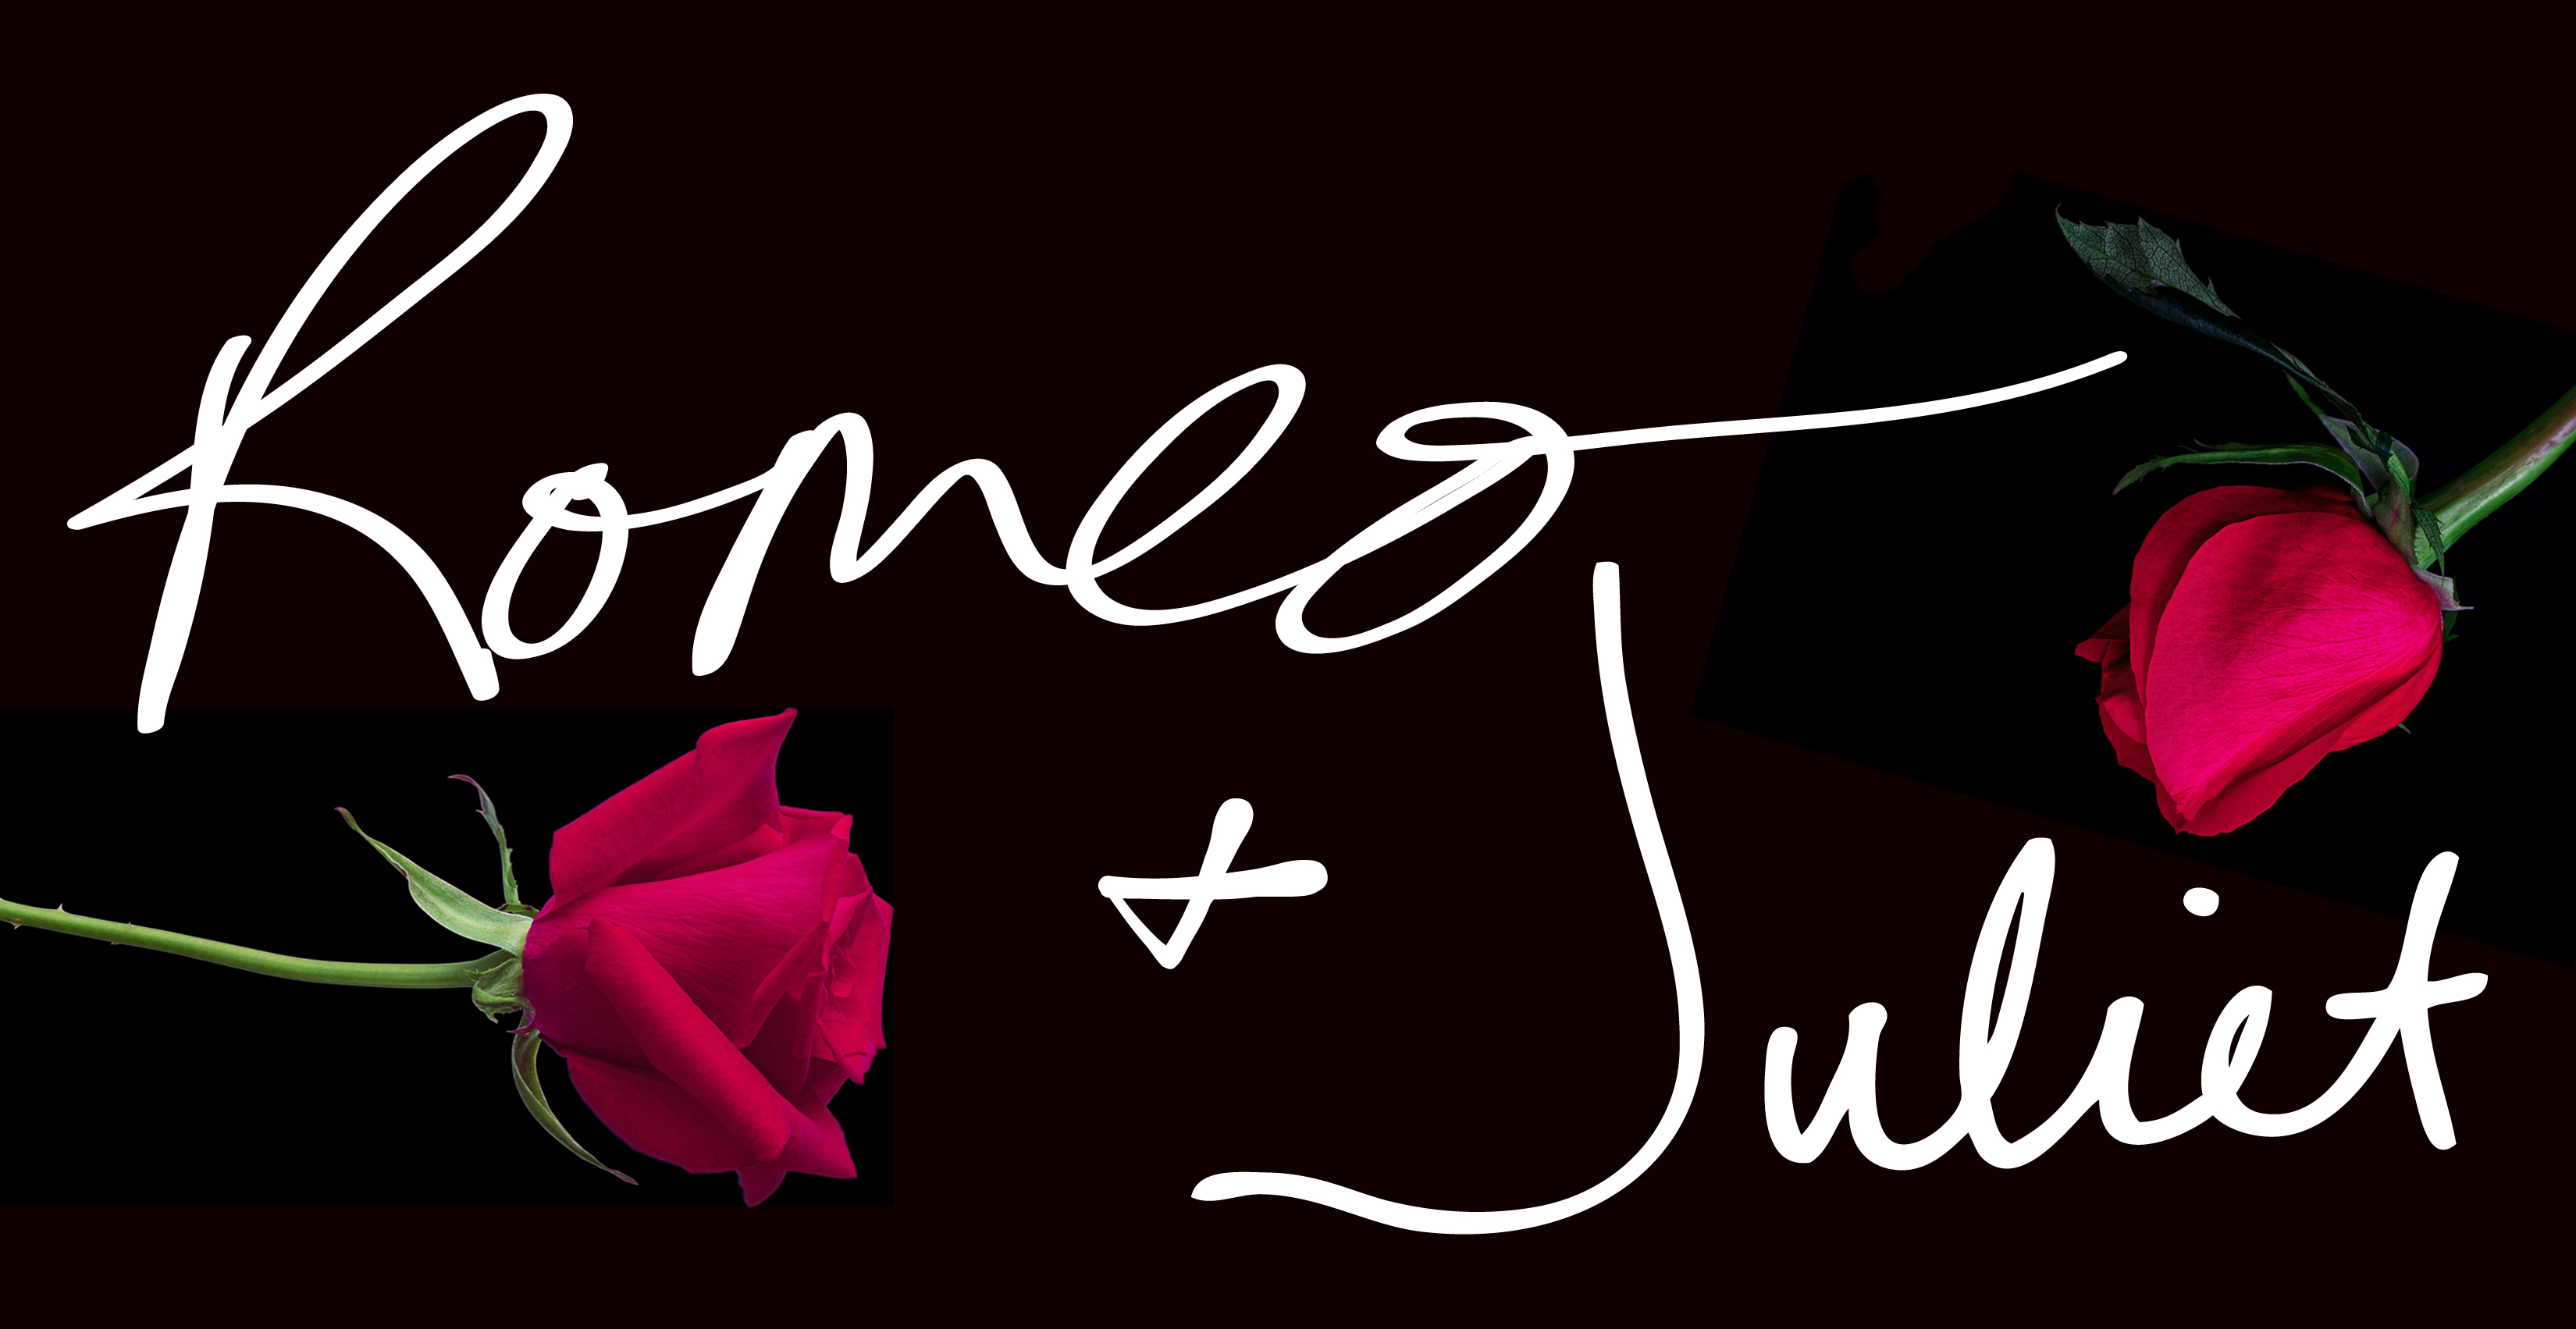 Romeo
+
Juliet